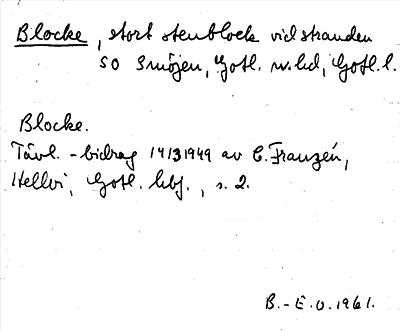 Blocke, stort stenblock vid stranden
SO Smöjen, Gotl. n. hd, Gotl. l.
Blocke.
Tävl.-bidrag 14/3 1949 av C. Franzén,
Hellvi, Gotl. , s. 2.
B.-E.O. 1961.